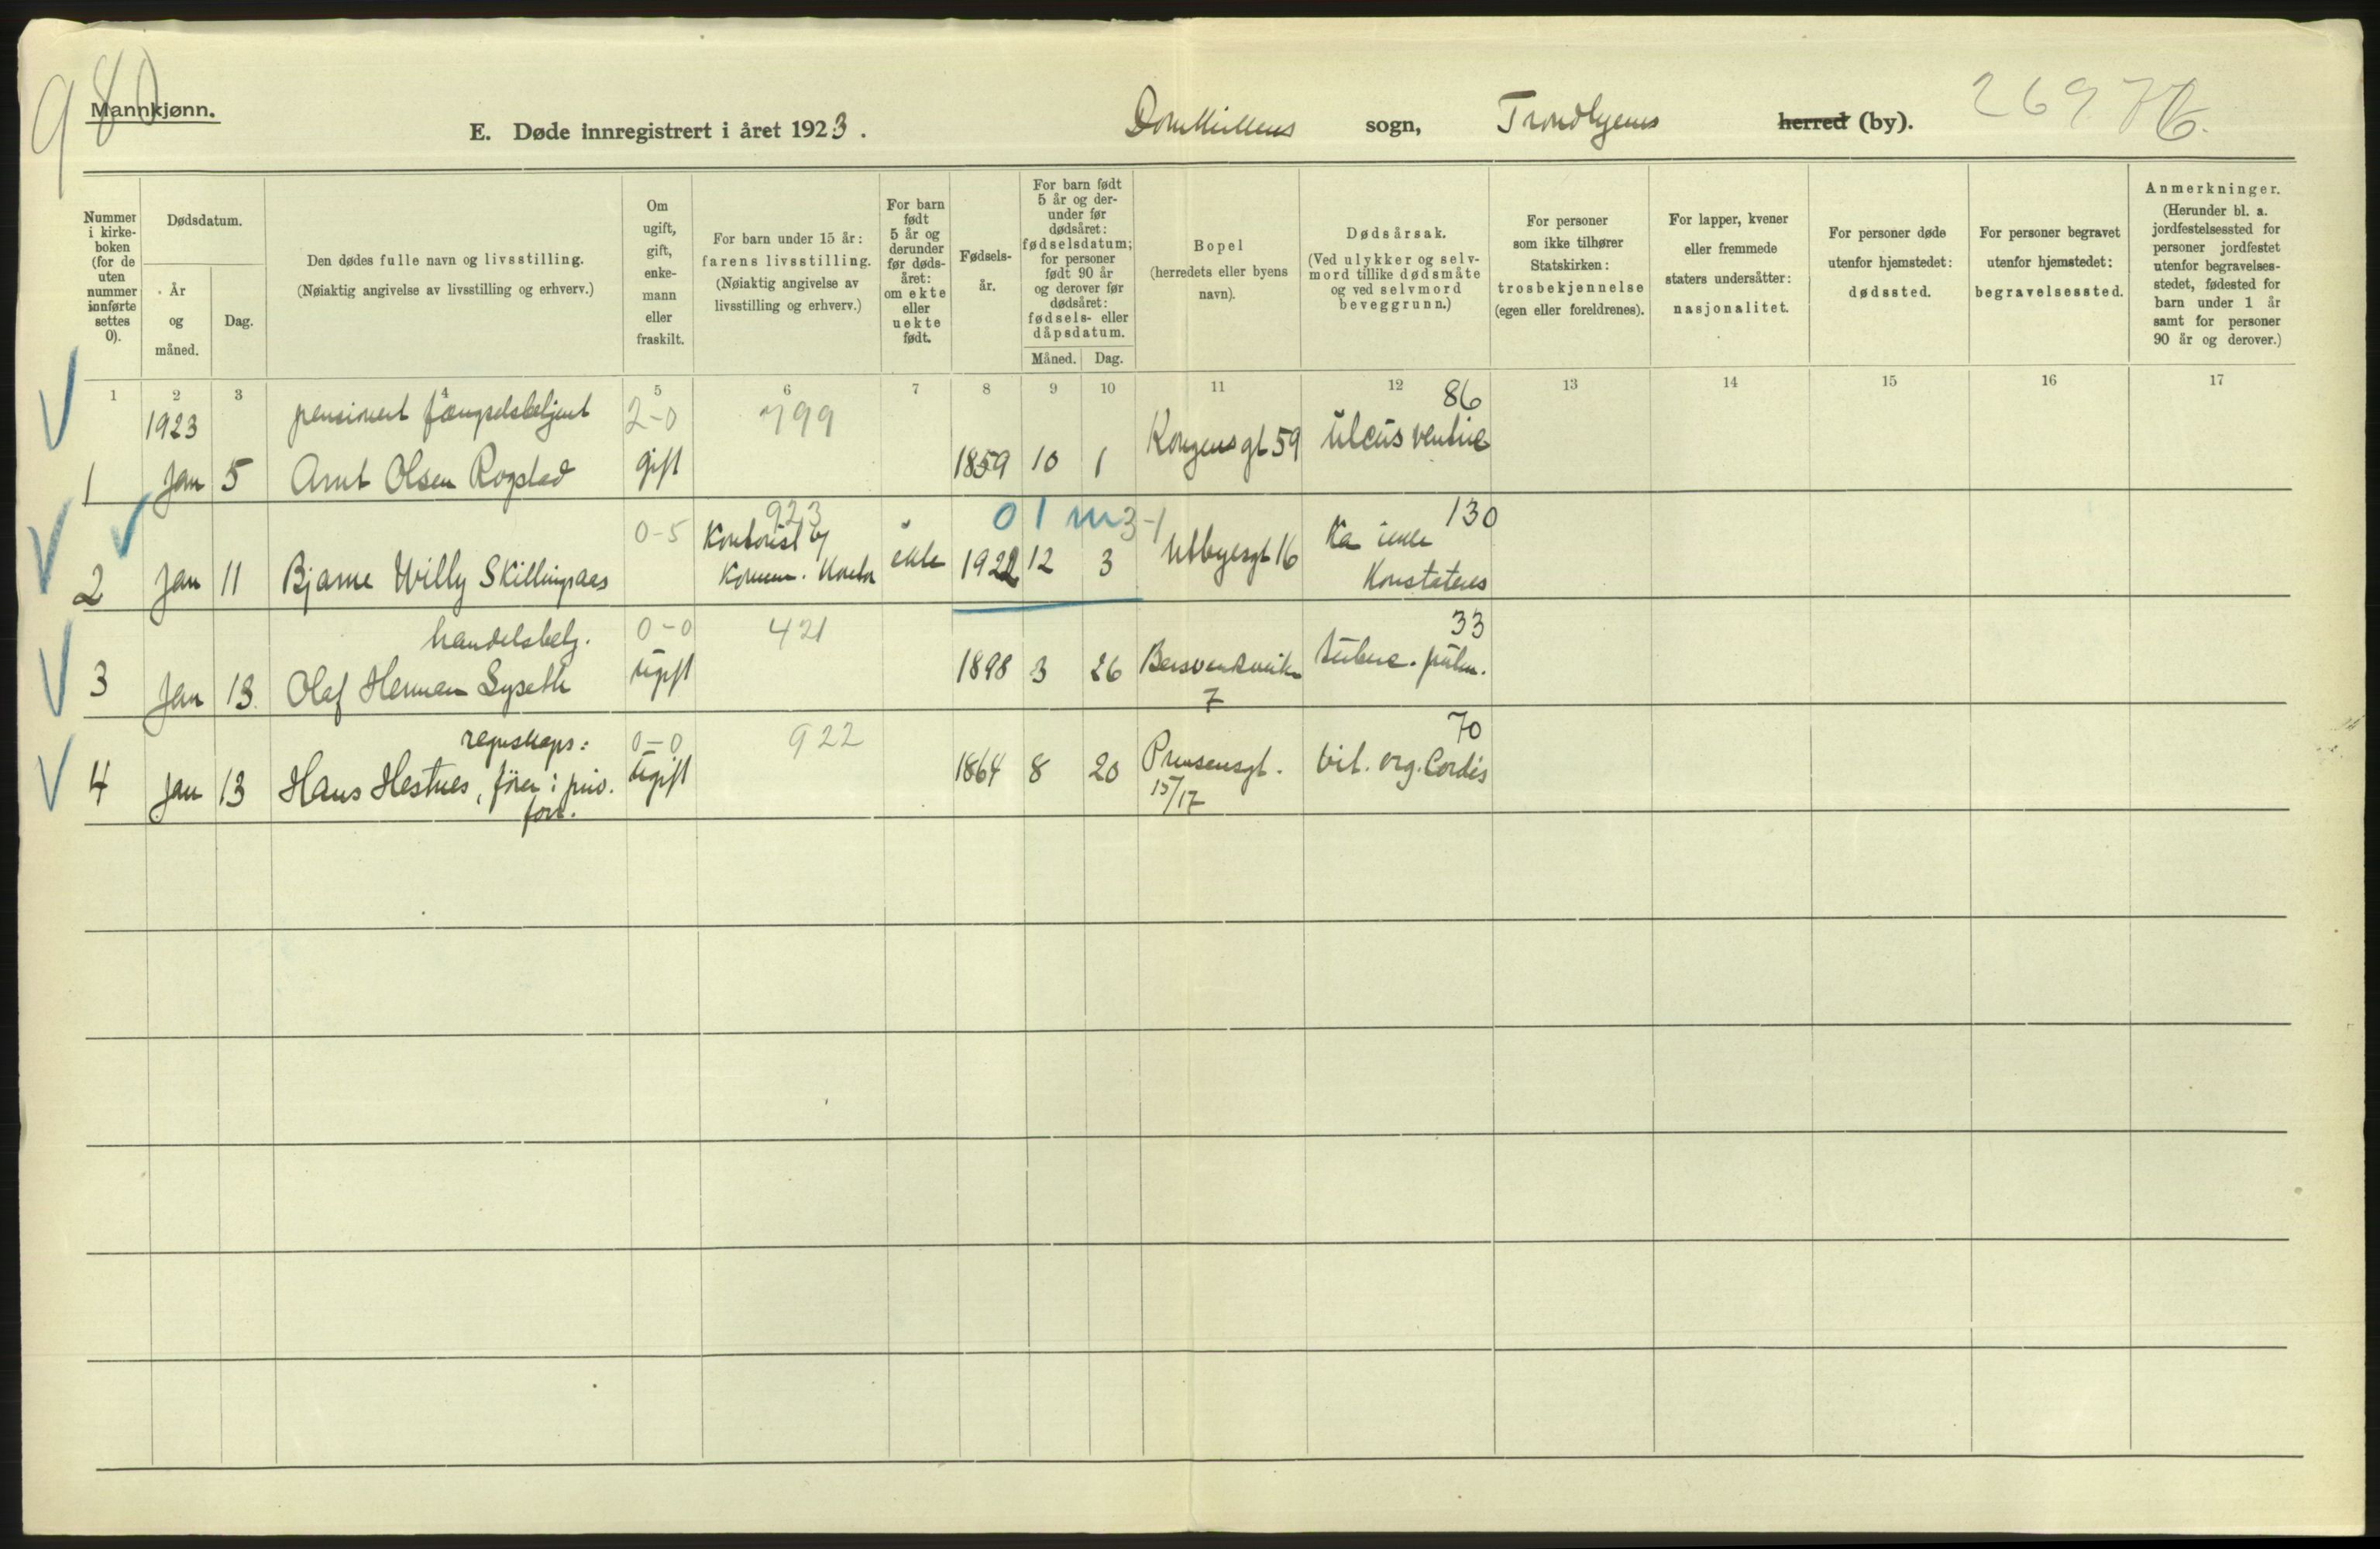 980
Mannkjønn.
E. Døde innregistrert i året 1923.
Domkirkens sogn, Trondhjems herred (by).
269
Nummer i kirkeboken (for de uten nummer innførte settes 0).
Dødsdatum.
År og måned.
Dag.
Den dødes fulle navn og livsstilling.
(Nøiaktig angivelse av livsstilling og erhverv.)
Om ugift, gift, enkemann eller fraskilt.
For barn under 15 år:
farens livsstilling.
(Nøiaktig angivelse av livsstilling og erhverv.)
For barn født 5 år og derunder før dødsåret: om ekte eller uekte født.
Fødselsår.
For barn født 5 år og derunder før dødsåret: fødselsdatum; for personer født 90 år og derover før dødsåret: fødsels- eller dåpsdatum.
Måned. Dag.
Bopel
(herredets eller byens navn).
Dødsårsak.
(Ved ulykker og selvmord tillike dødsmåte og ved selvmord beveggrunn.)
For personer som ikke tilhører Statskirken: trosbekjennelse (egen eller foreldrenes).
For lapper, kvener eller fremmede staters undersåtter: nasjonalitet.
For personer døde utenfor hjemstedet: dødssted.
For personer begravet utenfor hjemstedet: begravelsessted.
Anmerkninger.
(Herunder bl. a. jordfestelsessted for personer jordfestet utenfor begravelsesstedet, fødested for barn under 1 år samt for personer 90 år og derover.)
1 2 3 4 5 6 7 8 9 10 11 12 13 14 15 16 17
1923 pensionert fængselsbetjent 2-0 799 86
1 Jan 5 Arnt Olsen Rogstad gift 1859 10 1 Kongensgt 59 ulcus ventric
0-5 923 0 1 m 3-1 130
Kontorist v/ Kan ikke
2 Jan 11 Bjarne Willy Skillingsaas Kommu. Kontor ekte 1922 12 3 16 Konstateres
handelsbetj. 0-0 421 33
3 Jan 13. Olaf Herman Lyseth ugift 1898 3 26 Bersvendveiten tuberc. pulm.
7
regnskaps: 0-0 922 70
4 Jan 13 Hans Hestnes, fører i priv. ugift 1864 8 20 Prinsensgt. vit. org. Cordis
forr. 15/17